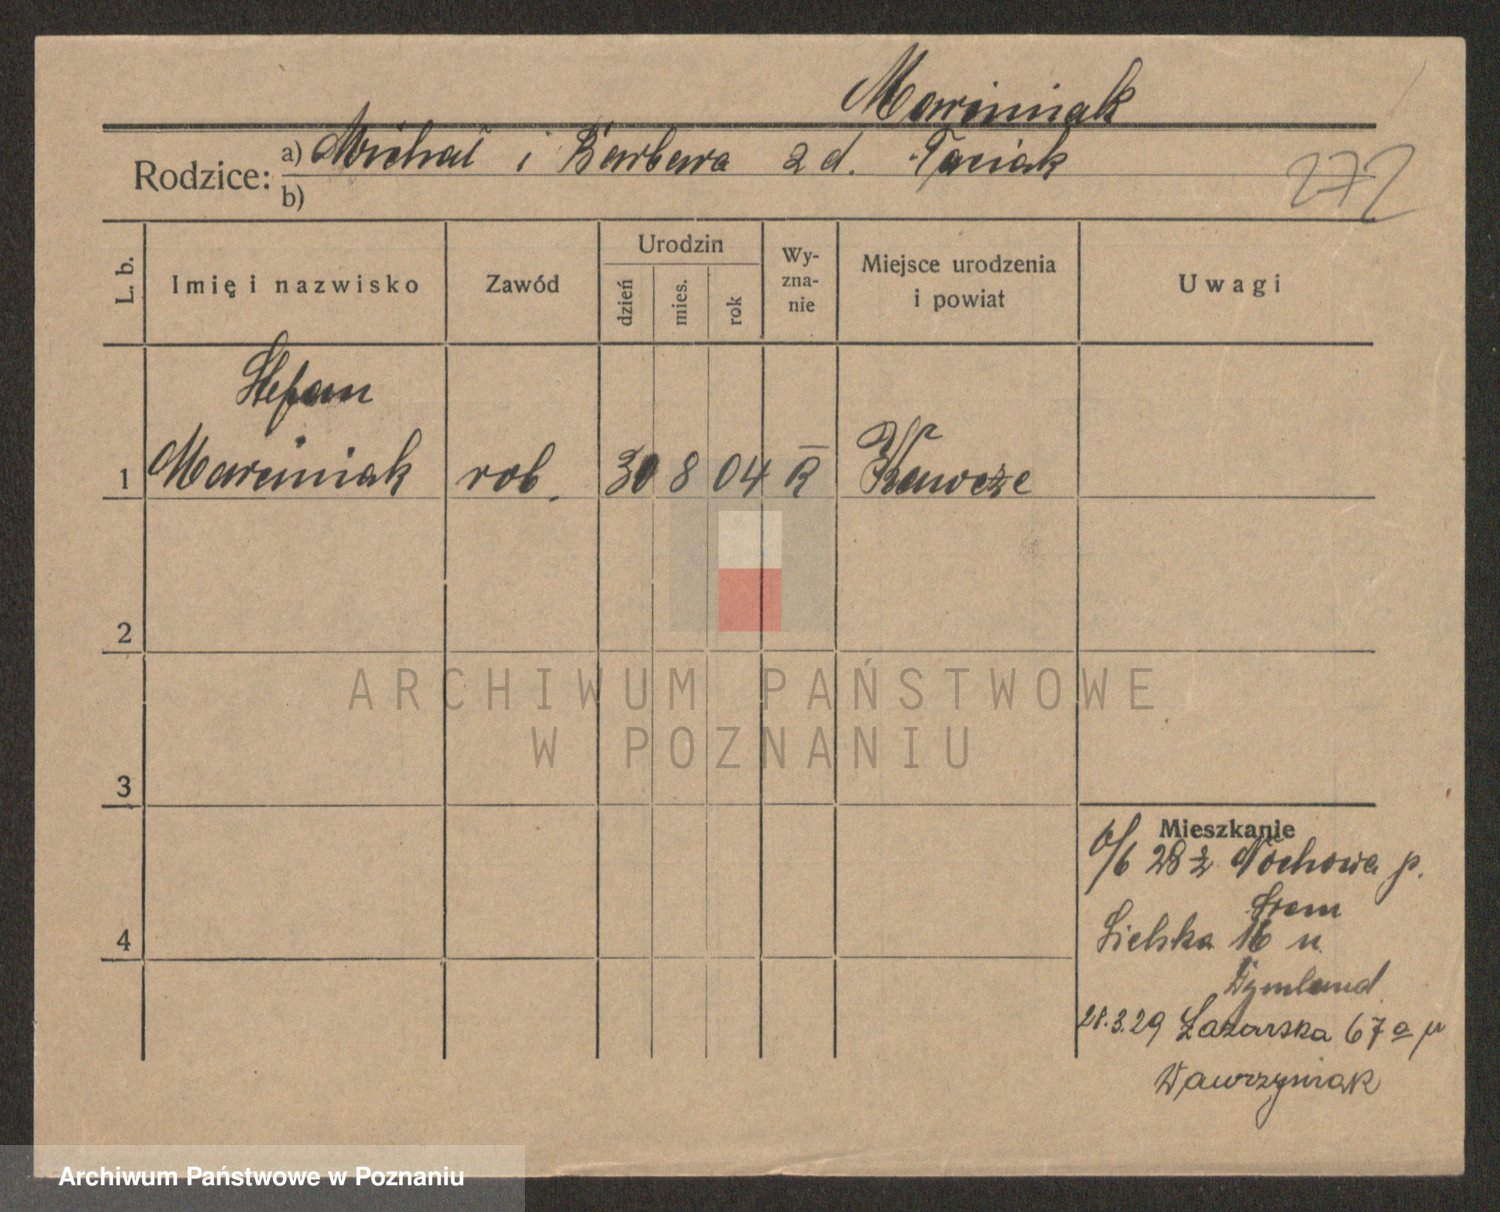 Marciniak
Rodzice: a) Michał i Barbara z d. Taciak
b)
272
L. b. Imię i nazwisko Zawód Urodzin dzień mies. rok Wy-zna-nie Miejsce urodzenia i powiat Uwagi
Stefan
1 Marciniak rob. 30 8 04 R Kawcze
2
ARCHIWUM PAŃSTWOWE
W POZNANIU
3
Mieszkanie
6/6 28 z Nochowa p.
Śrem
4
Lielska 16 u
28.3.29 Łazarska 67a u
Wawrzyniak
Archiwum Państwowe w Poznaniu